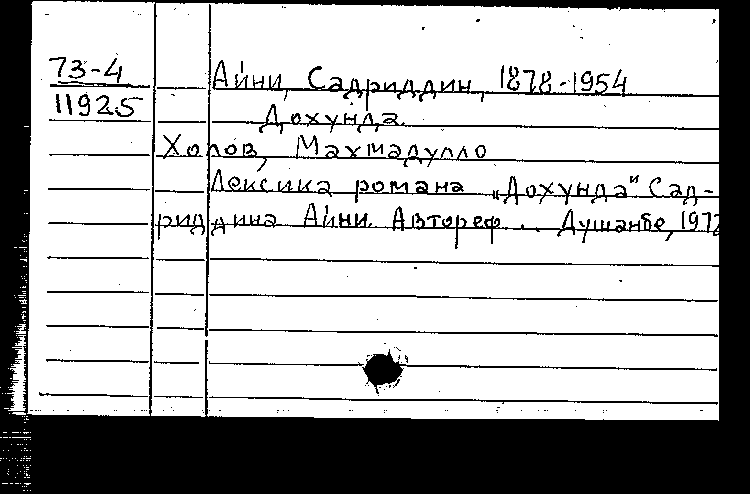 73-4
11925
Айни, Садриддин, 1878-1954
Дохунда.
Холов, Махмадулло
Лексика романа „Дохунда" Сад-
риддина Айни. Автореф... Душанбе, 1972